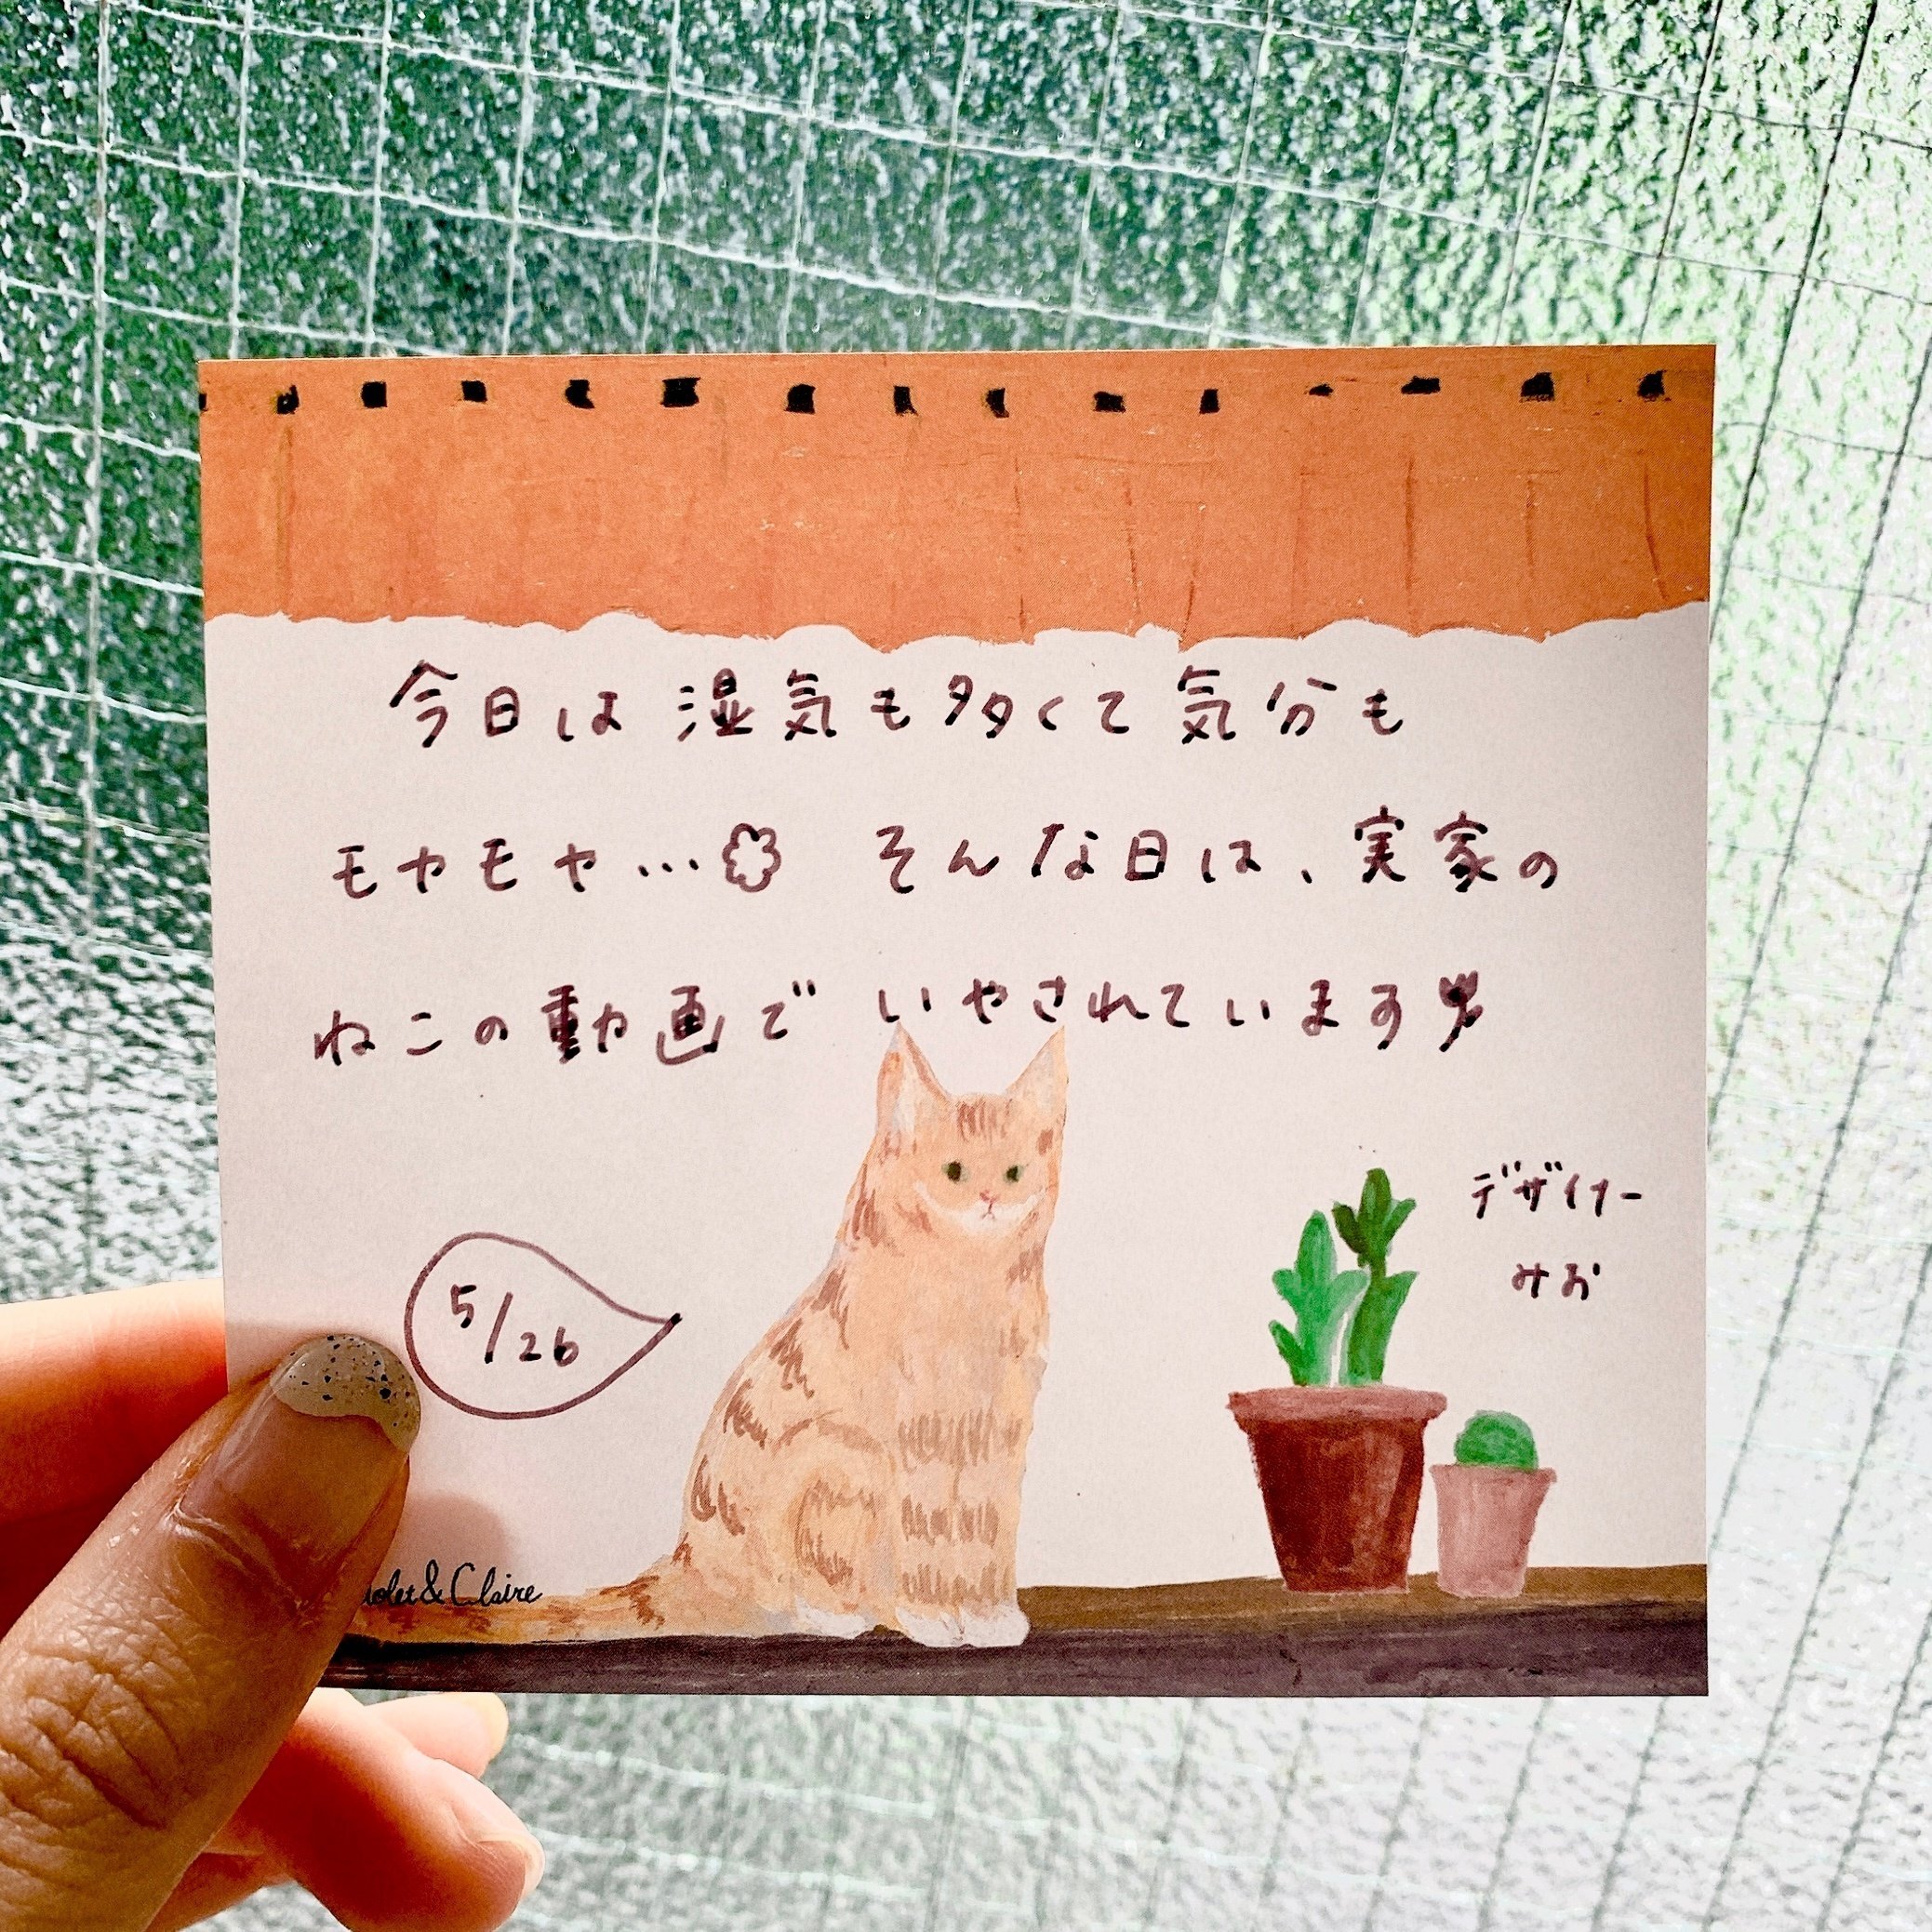 今日は湿気も多くて気分も
モヤモヤ… そんな日は、実家の
ねこの動画でいやされています
デザイナー
みお
5/26
olet & Claire